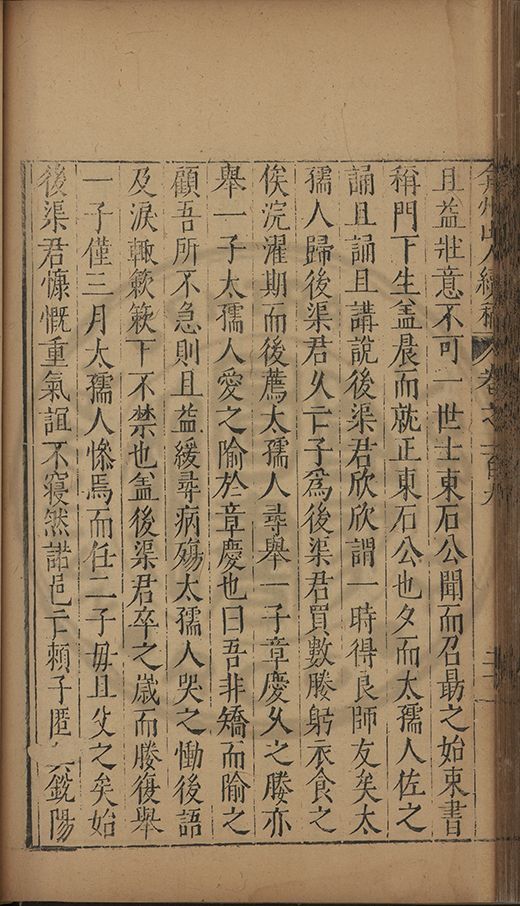 弇州山人續稿 卷之一百九
且益壯意不可一世士東石公聞而召勗之始束書
稱門下生盖晨而就正東石公也夕而太孺人佐之
誦且誦且講說後渠君欣欣謂一時得良師友矣太
孺人歸後渠君久亡子爲後渠君買數媵躬衣食之
俟浣濯期而後薦太孺人尋舉一子章慶久之媵亦
舉一子太孺人愛之隃於章慶也曰吾非矯而隃之
顧吾所不急則且益緩尋病殤太孺人哭之慟後語
及淚輒簌簌下不禁也盖後渠君卒之歲而媵復舉
一子僅三月太孺人慘焉而任二子毋且父之矣始
後渠君慷慨重氣誼不寢然諾邑亡賴子匿銳陽